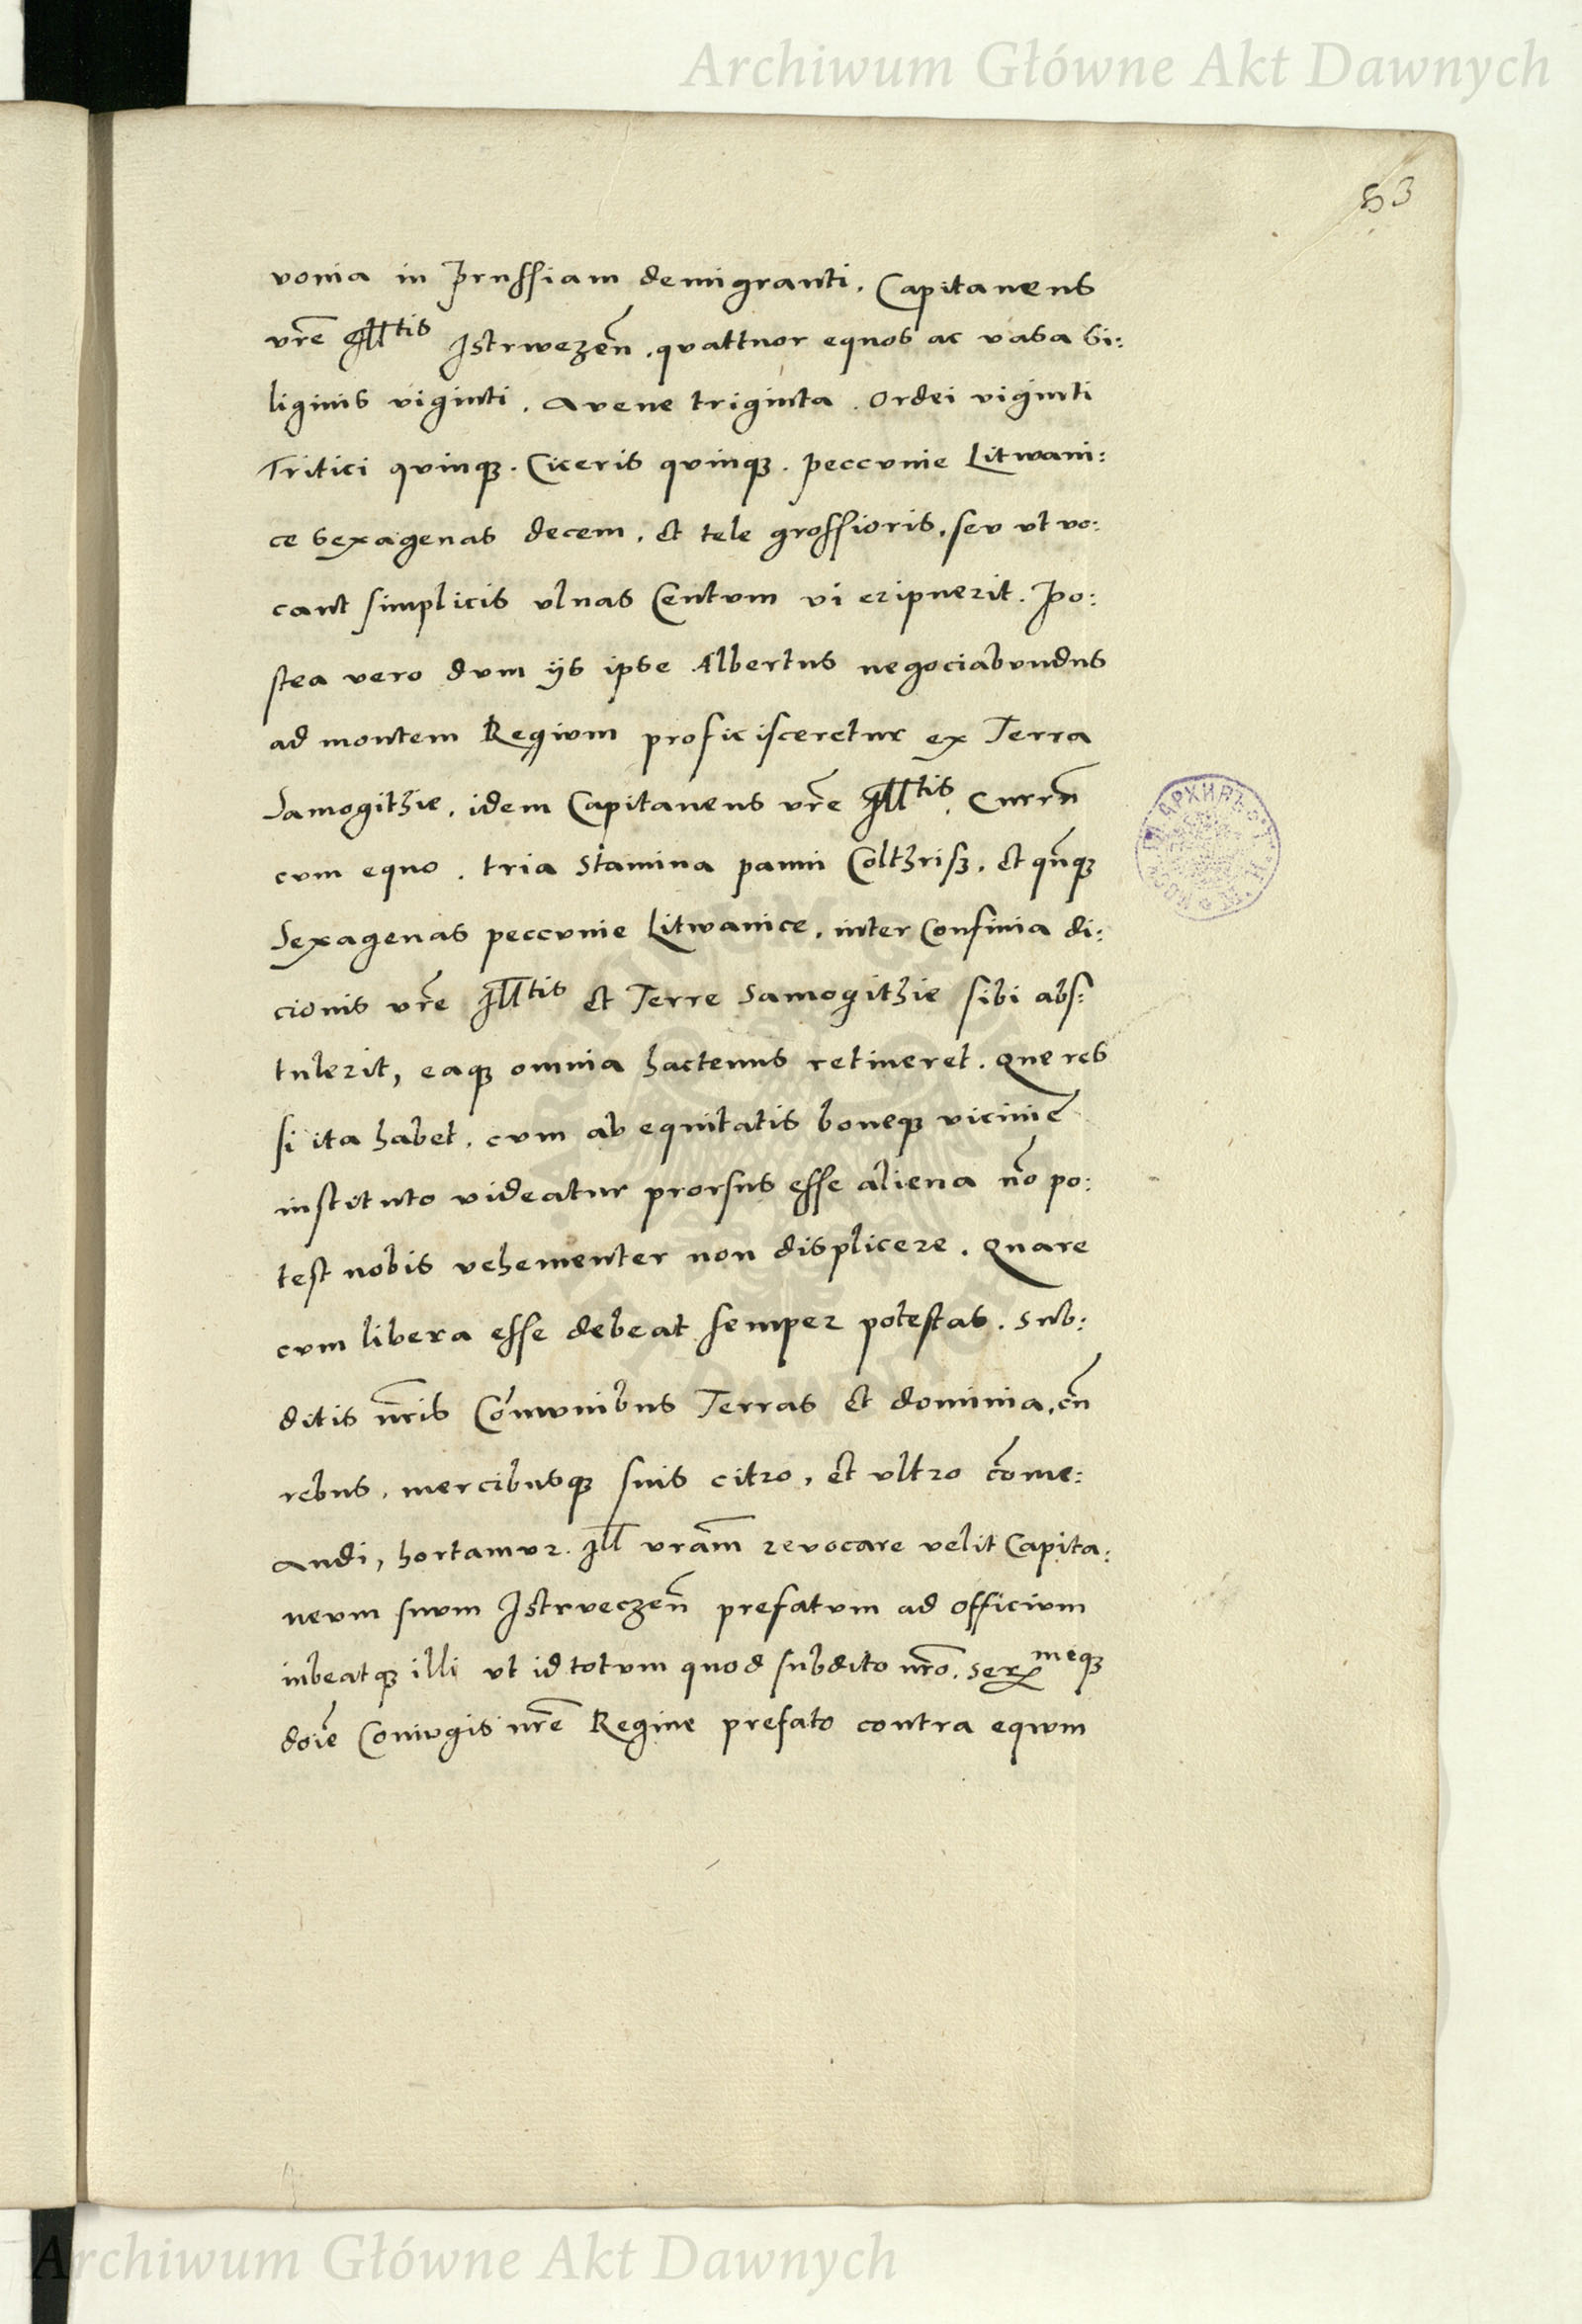 Archiwum Główne Akt Dawnych
53
vonia in Prussiam demigranti. Capitaneus
vr̃e Ill̃tis Istrwezeñ. quattuor equos ac vasa si:
liginis viginti. Avene triginta. Ordei viginti
Tritici quinqꝫ. Ciceris quinqꝫ. peccunie Litwani:
ce sexagenas decem, et tele grossioris, seu vt vo:
cant simplicis vlnas Centum vi eripuerit. Po:
stea vero dum ijs ipse Albertus negociabundus
ad montem Regium proficisceretur ex Terra
Samogithie, idem Capitaneus vr̃e Ill̃tis. Currñ
cum equo. tria stamina panni Colthrisz. et qũqꝫ
Sexagenas peccunie Litwanice, inter Confinia di:
cionis vr̃e Ill̃tis et Terre Samogithie sibi abs:
tulerit, eaqꝫ omnia hactenus retineret. Que res
si ita habet, cum ab equitatis boneqꝫ vicinię
instituto videatur prorsus esse aliena nõ po:
test nobis vehementer non displicere. Quare
cum libera esse debeat semper potestas. sub:
ditis nr̃is Cõmunibus Terras et dominia, cũ
rebus, mercibusqꝫ suis citro, et vltro cõme:
andi, hortamur. Ill̃ vram̃ revocare velit Capita:
neum suum Istrveczeñ prefatum ad officium
iubeatqꝫ illi vt id totum quod subdito nr̃o. Serͫeqꝫ
doĩe Coniugis nr̃e Regine prefato contra equum
Archiwum Główne Akt Dawnych